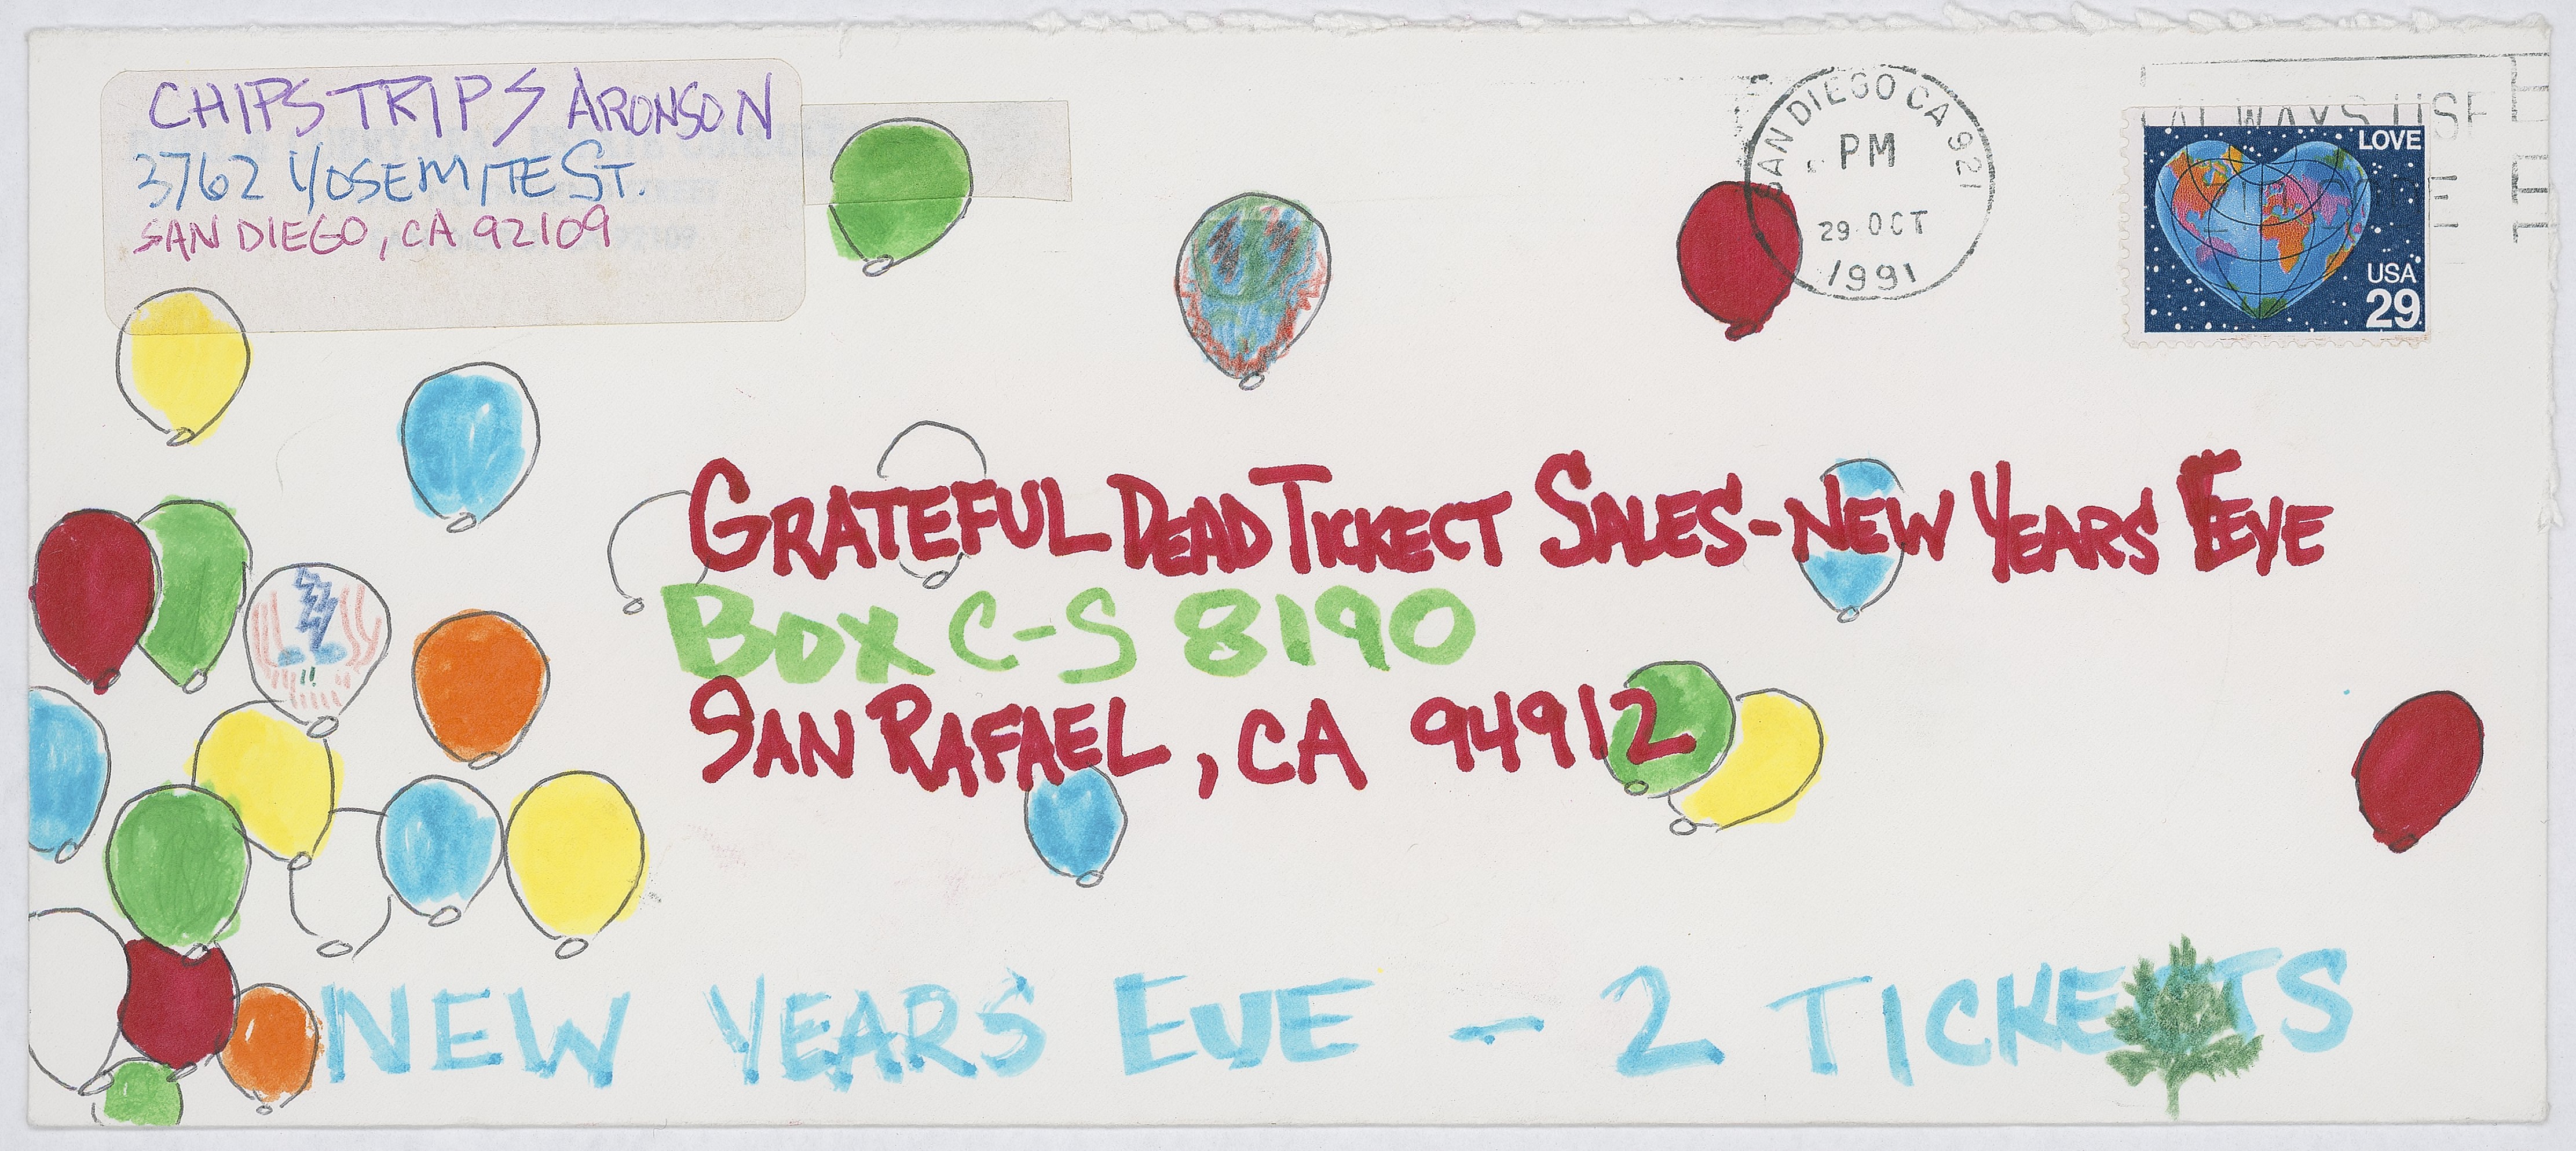 CHIPS TRIPS ARONSON
3762 YOSEMITE ST.
SAN DIEGO, CA 92109
SAN DIEGO CA 921
PM
29 OCT
1991
ALWAYS USE
LOVE
USA
29
GRATEFUL DEAD TICKECT SALES-NEW YEARS EEVE
BOX C-S 8190
SAN RAFAEL, CA 94912
NEW YEARS EVE - 2 TICKETS